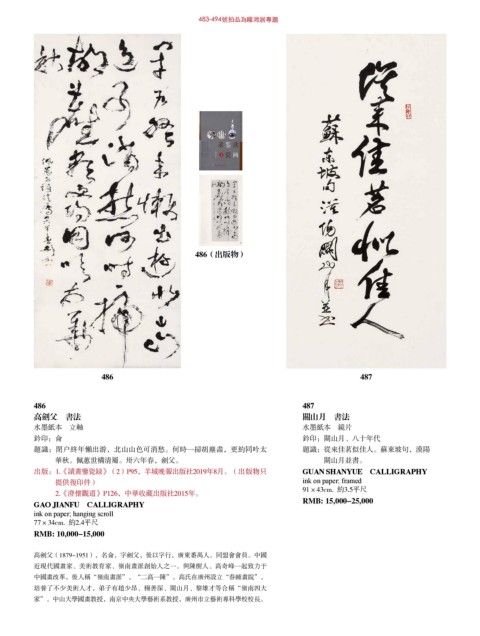 483-494號拍品為關湘居專題
從來佳茗似佳人
蘇東坡句 漠陽關山月並書
486（出版物）
486
487
486
高劍父　書法
水墨紙本　立軸
鈐印：侖
題識：閉户終年懶出游，北山山色可消愁。何時一掃胡塵盡，更約同吟太
華秋。佩蕙世構清屬。卅六年春，劍父。
出版：1.《讀畫鑒瓷錄》（2）P95，羊城晚報出版社2019年8月。（出版物只
提供復印件）
2.《澄懷觀道》P126，中華收藏出版社2015年。
GAO JIANFU　CALLIGRAPHY
ink on paper; hanging scroll
77×34cm. 約2.4平尺
RMB: 10,000-15,000
高劍父（1879-1951），名侖，字劍父，後以字行，廣東番禺人。同盟會會員。中國
近現代國畫家、美術教育家、嶺南畫派創始人之一。與陳樹人、高奇峰一起致力于
中國畫改革，後人稱“嶺南畫派”，“二高一陳”。高氏在廣州設立“春睡畫院”，
培養了不少美術人才，弟子有趙少昂、楊善深、關山月、黎雄才等合稱“嶺南四大
家”。中山大學國畫教授，南京中央大學藝術系教授，廣州市立藝術專科學校校長。
487
關山月　書法
水墨紙本　鏡片
鈐印：關山月、八十年代
題識：從來佳茗似佳人。蘇東坡句，漠陽
關山月並書。
GUAN SHANYUE　CALLIGRAPHY
ink on paper; framed
91×43cm. 約3.5平尺
RMB: 15,000-25,000